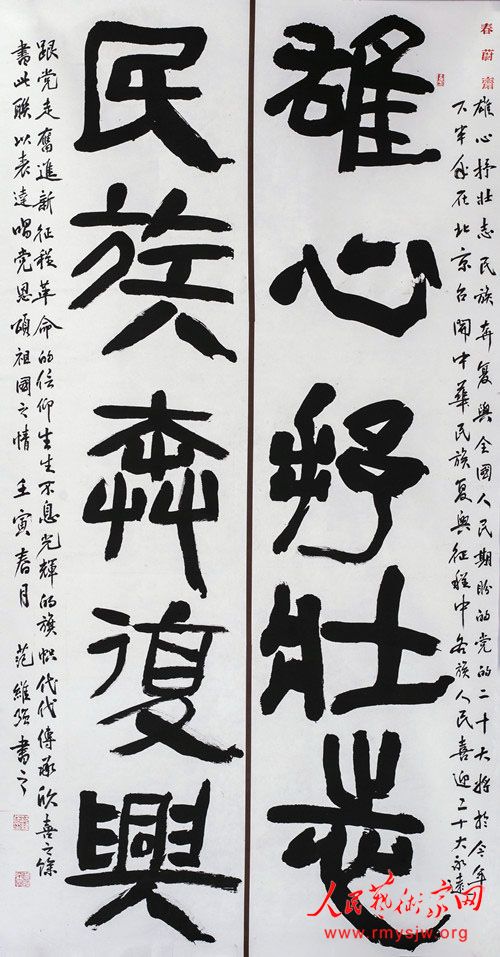 春蔚齋
雄心抒壮志民族奔复興全國人民期盼的党的二十大将於今年
下半年在北京召開中華民族复興征程中各族人民喜迎二十大永遠
雄心抒壯志
民族奔復興
跟党走奮進新征程革命的信仰生生不息光輝的旗帜代代傳承欣喜之餘
書此聯以表達唱党恩頌祖國之情 壬寅春月 范維強書之
人民藝術家网
www.rmysjw.org